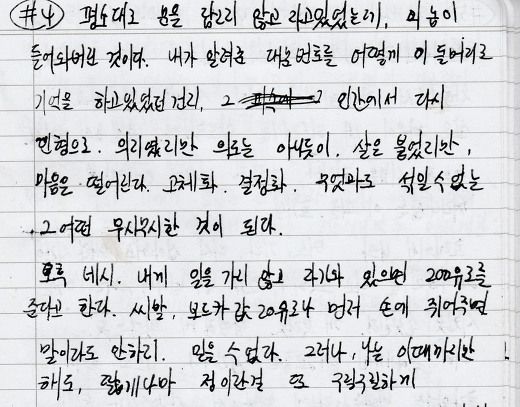 #4 평소대로 문을 잠그지 않고 자고있었는데, 이 놈이
들어와버린 것이다. 내가 알려준 대문번호를 어떻게 이 돌머리로
기억을 하고있었던 건지, 그 인간에서 다시
인형으로. 의리였지만 의도는 아니듯이. 살은 붙었지만,
마음은 떨어진다. 고체화. 결정화. 무엇과도 섞일 수 없는
그 어떤 무시무시한 것이 된다.
오후 네시. 내게 일을 가지 않고 자기와 있으면 200유로를
준다고 한다. 씨발, 보드카 값 20유로나 먼저 손에 쥐어주면
말이라도 안하리. 믿을 수 없다. 그러나, 나는 이때까지만
해도, 짧게나마 정이란걸 또 구릿구릿하게